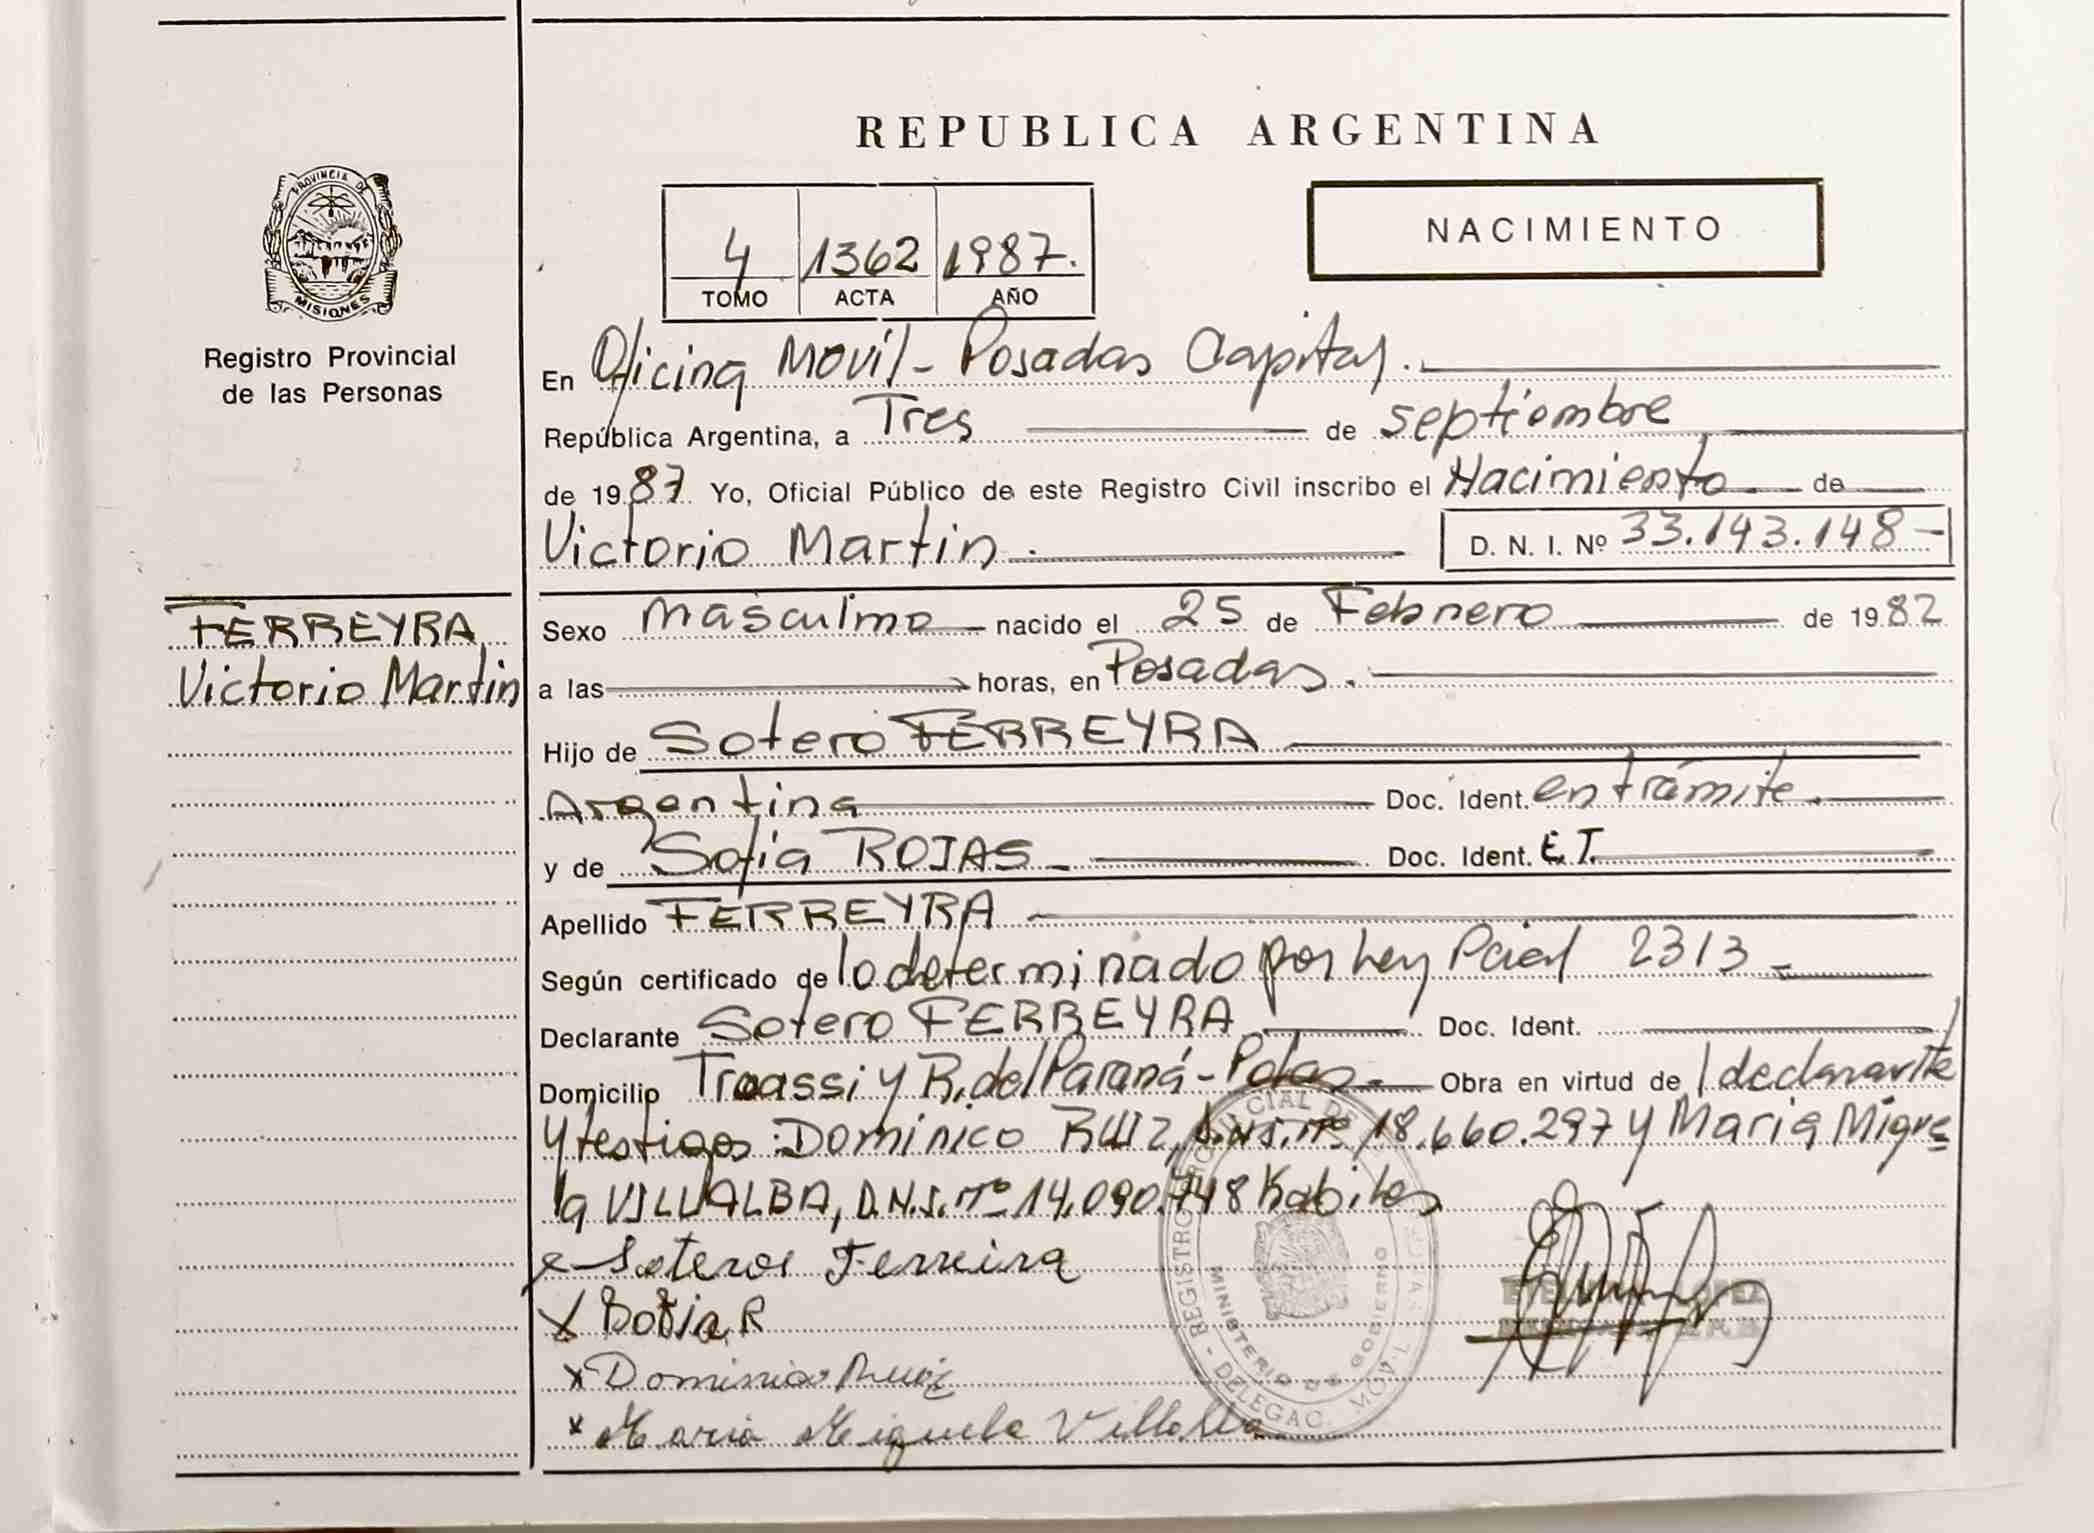 REPUBLICA ARGENTINA
NACIMIENTO
4 1362 1987.
TOMO ACTA AÑO
PROVINCIA DE
MISIONES
Registro Provincial
de las Personas
En Oficina Movil - Posadas Capital.
República Argentina, a Tres de septiembre
de 1987 Yo, Oficial Público de este Registro Civil inscribo el Nacimiento de
Victorio Martin. D. N. I. Nº 33.143.148-
FERREYRA
Victorio Martin
Sexo masculino nacido el 25 de Febrero de 1982
a las horas, en Posadas.
Hijo de Sotero FERREYRA
Argentina Doc. Ident. en trámite.
y de Sofia ROJAS Doc. Ident. E.T.
Apellido FERREYRA
Según certificado de lo determinado por Ley Pcial 2313
Declarante Sotero FERREYRA Doc. Ident.
Domicilio y R. del Paraná - Pdas Obra en virtud de declarante
y testigos: Dominico RUIZ, D.N.I. nº 18.660.297 y Maria Migue
la VILLALBA, D.N.I. nº 14.090.748
x Soteros Ferreira
x Sofia R
x Dominico Ruiz
x Maria Miguela Villalba
REGISTRO PROVINCIAL DE LAS PERSONAS
MINISTERIO DE GOBIERNO
DELEGAC. MOVIL